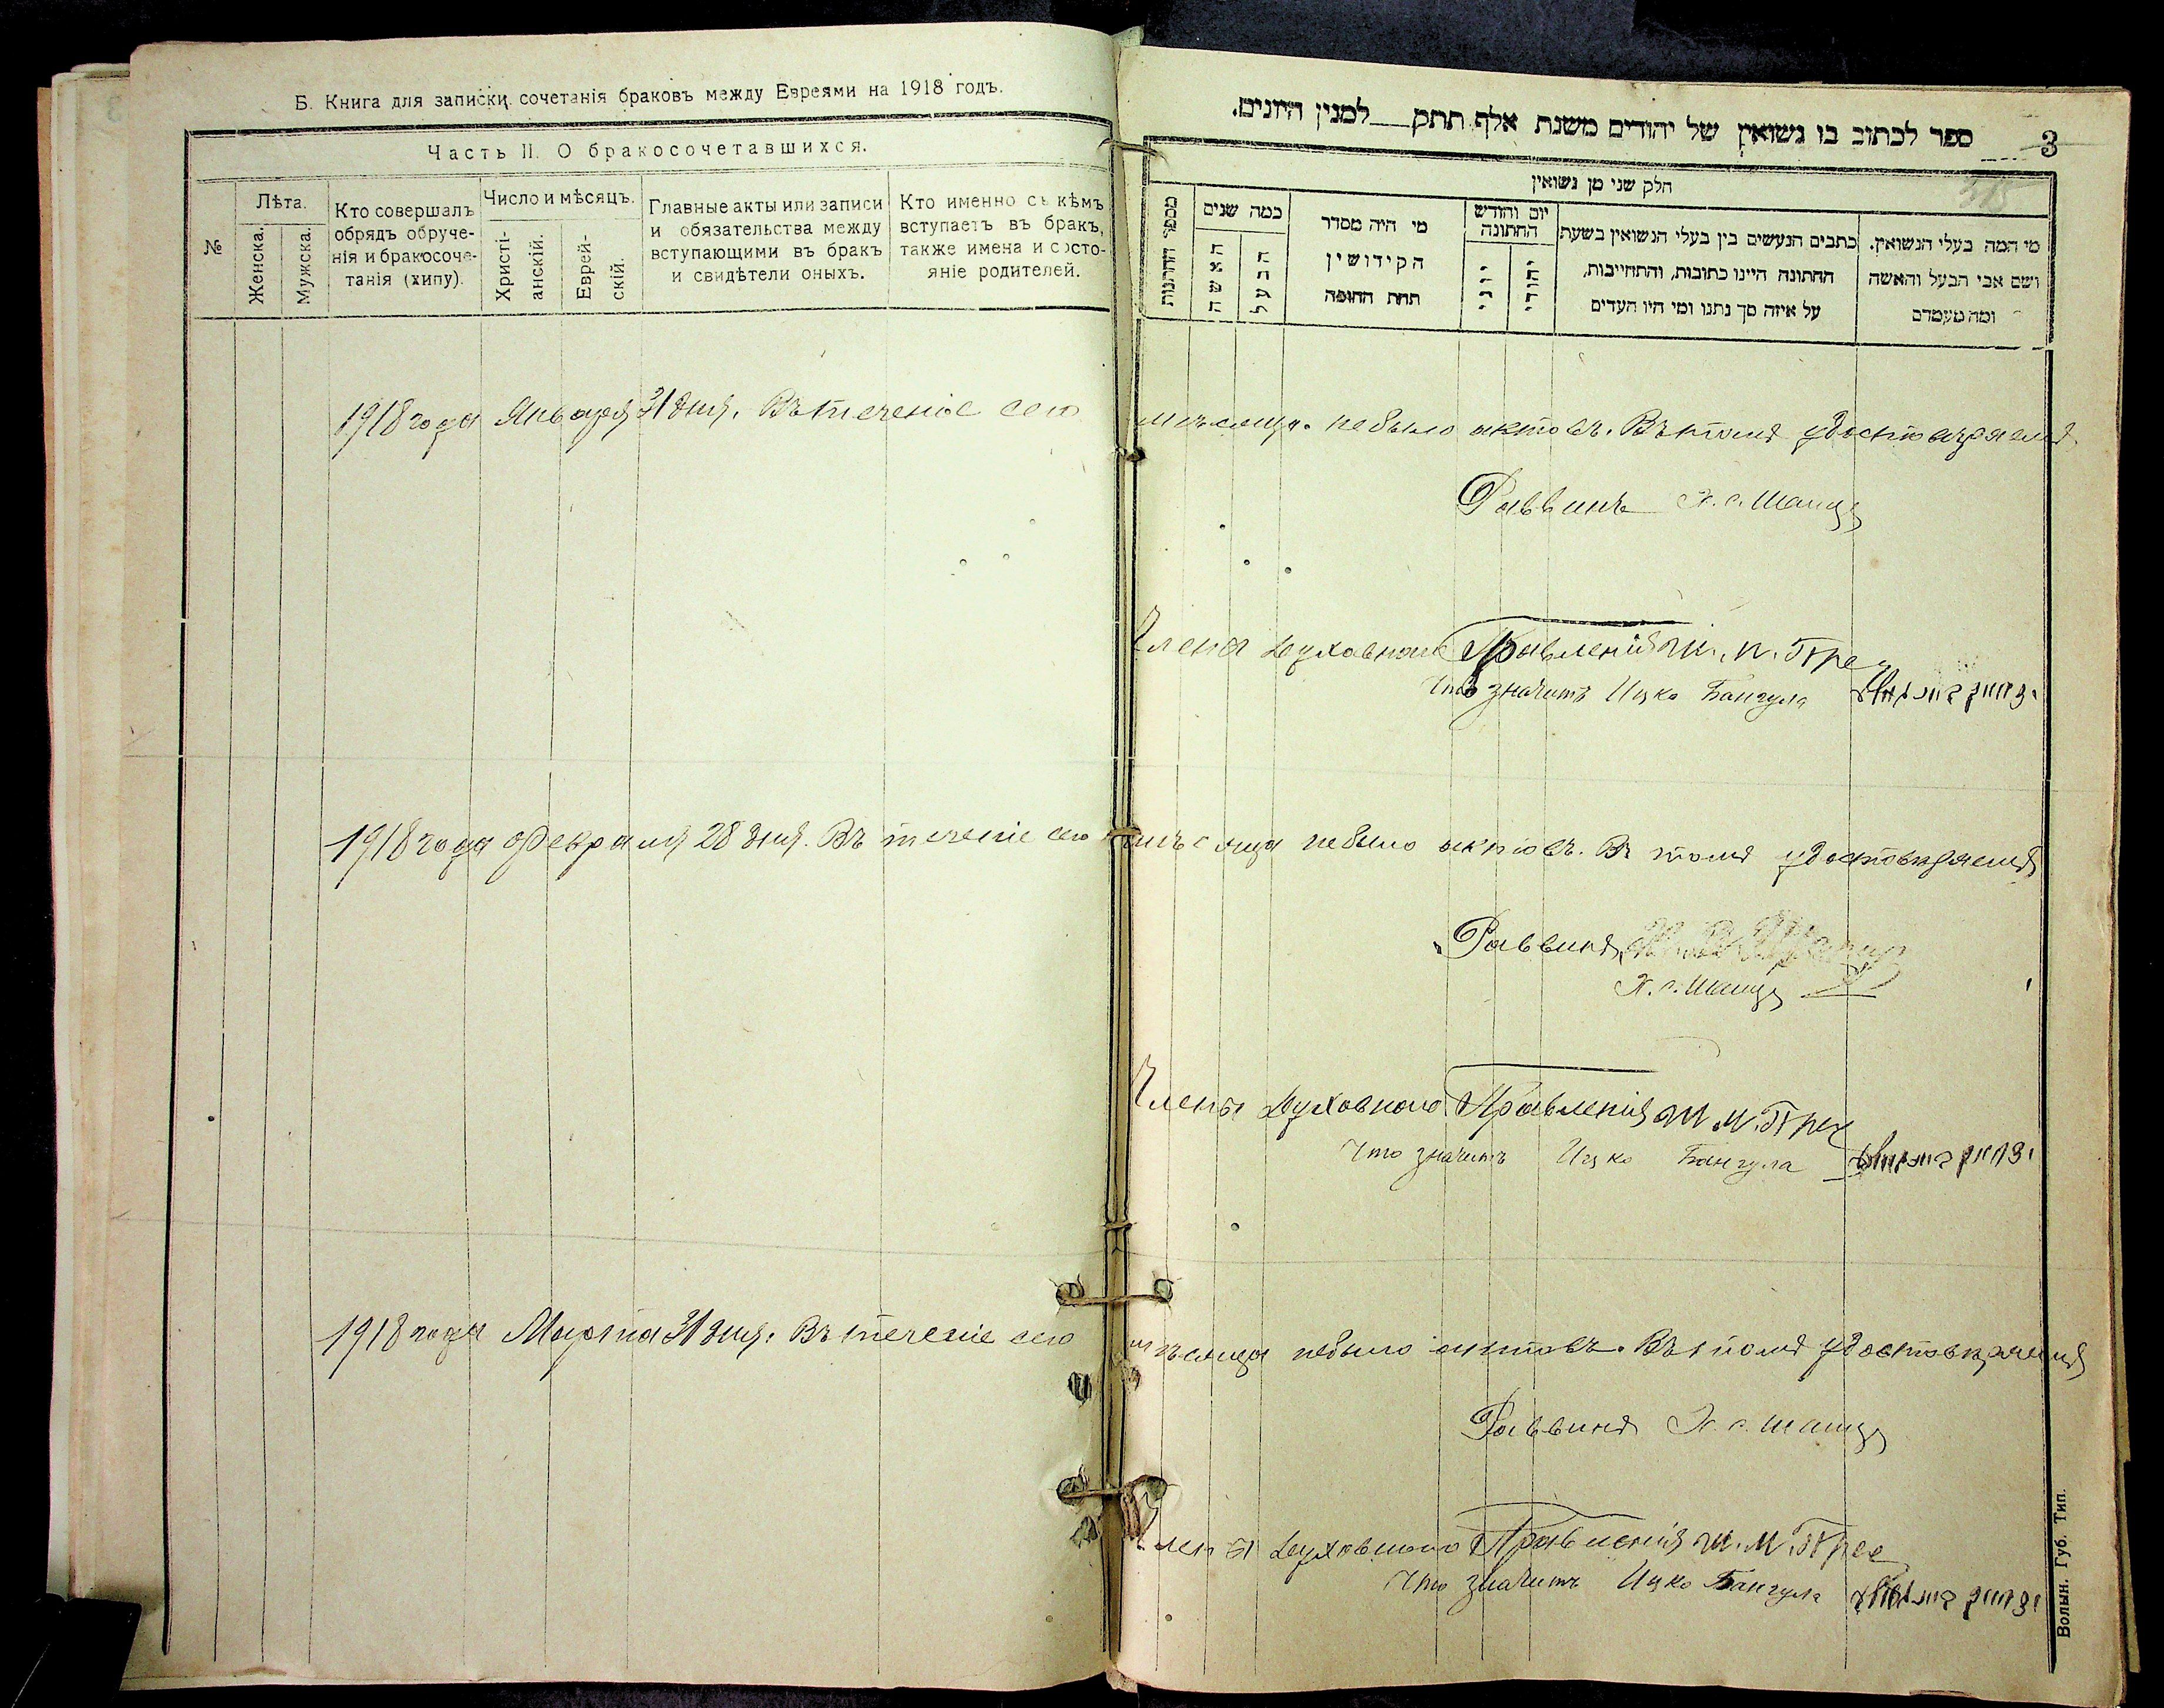 Б. Книга для записки сочетанія браковъ между Евреями на 1918 годъ.
Часть II. О бракосочетавшихся.
№
Лѣта.
Женска.
Мужска.
Кто совершалъ
обрядъ обруче-
нія и бракосоче-
танія (хипу).
Число и мѣсяцъ.
Христі-
анскій.
Еврей-
скій.
Главные акты или записи
и обязательства между
вступающими въ бракъ
и свидѣтели оныхъ.
Кто именно съ кѣмъ
вступаетъ въ бракъ,
также имена и состо-
яніе родителей.
3
ספר לכתוב בו נשואין של יהודים משנת אלף תתק למנין היונים.
חלק שני מן נשואין
מי המה בעלי הנשואין.
ושם אבי הבעל והאשה
ומה מעמדם
כתבים הנעשים בין בעלי הנשואין בשעת
החתונה היינו כתובות, והתחייבות,
על איזה סך נתנו ומי היו העדים
יום וחודש
החתונה
יהודי
יוני
מי היה מסדר
הקידושין
תחת החופה
כמה שנים
הבעל
האשה
מספר החתונות
1918 года Января 31 дня. Въ теченіе сего мѣсяца не было актовъ. Въ томъ удостовѣряемъ
Раввинъ
Члены Духовнаго Правленія
Что значитъ Ицко Бангула
1918 года Февраля 28 дня. Въ теченіе сего мѣсяца не было актовъ. Въ томъ удостовѣряемъ
Раввинъ
Члены Духовнаго Правленія
Что значитъ Ицко Бангула
1918 года Марта 31 дня. Въ теченіе сего мѣсяца не было актовъ. Въ томъ удостовѣряемъ
Раввинъ
Члены Духовнаго Правленія
Что значитъ Ицко Бангула
Волын. Губ. Тип.